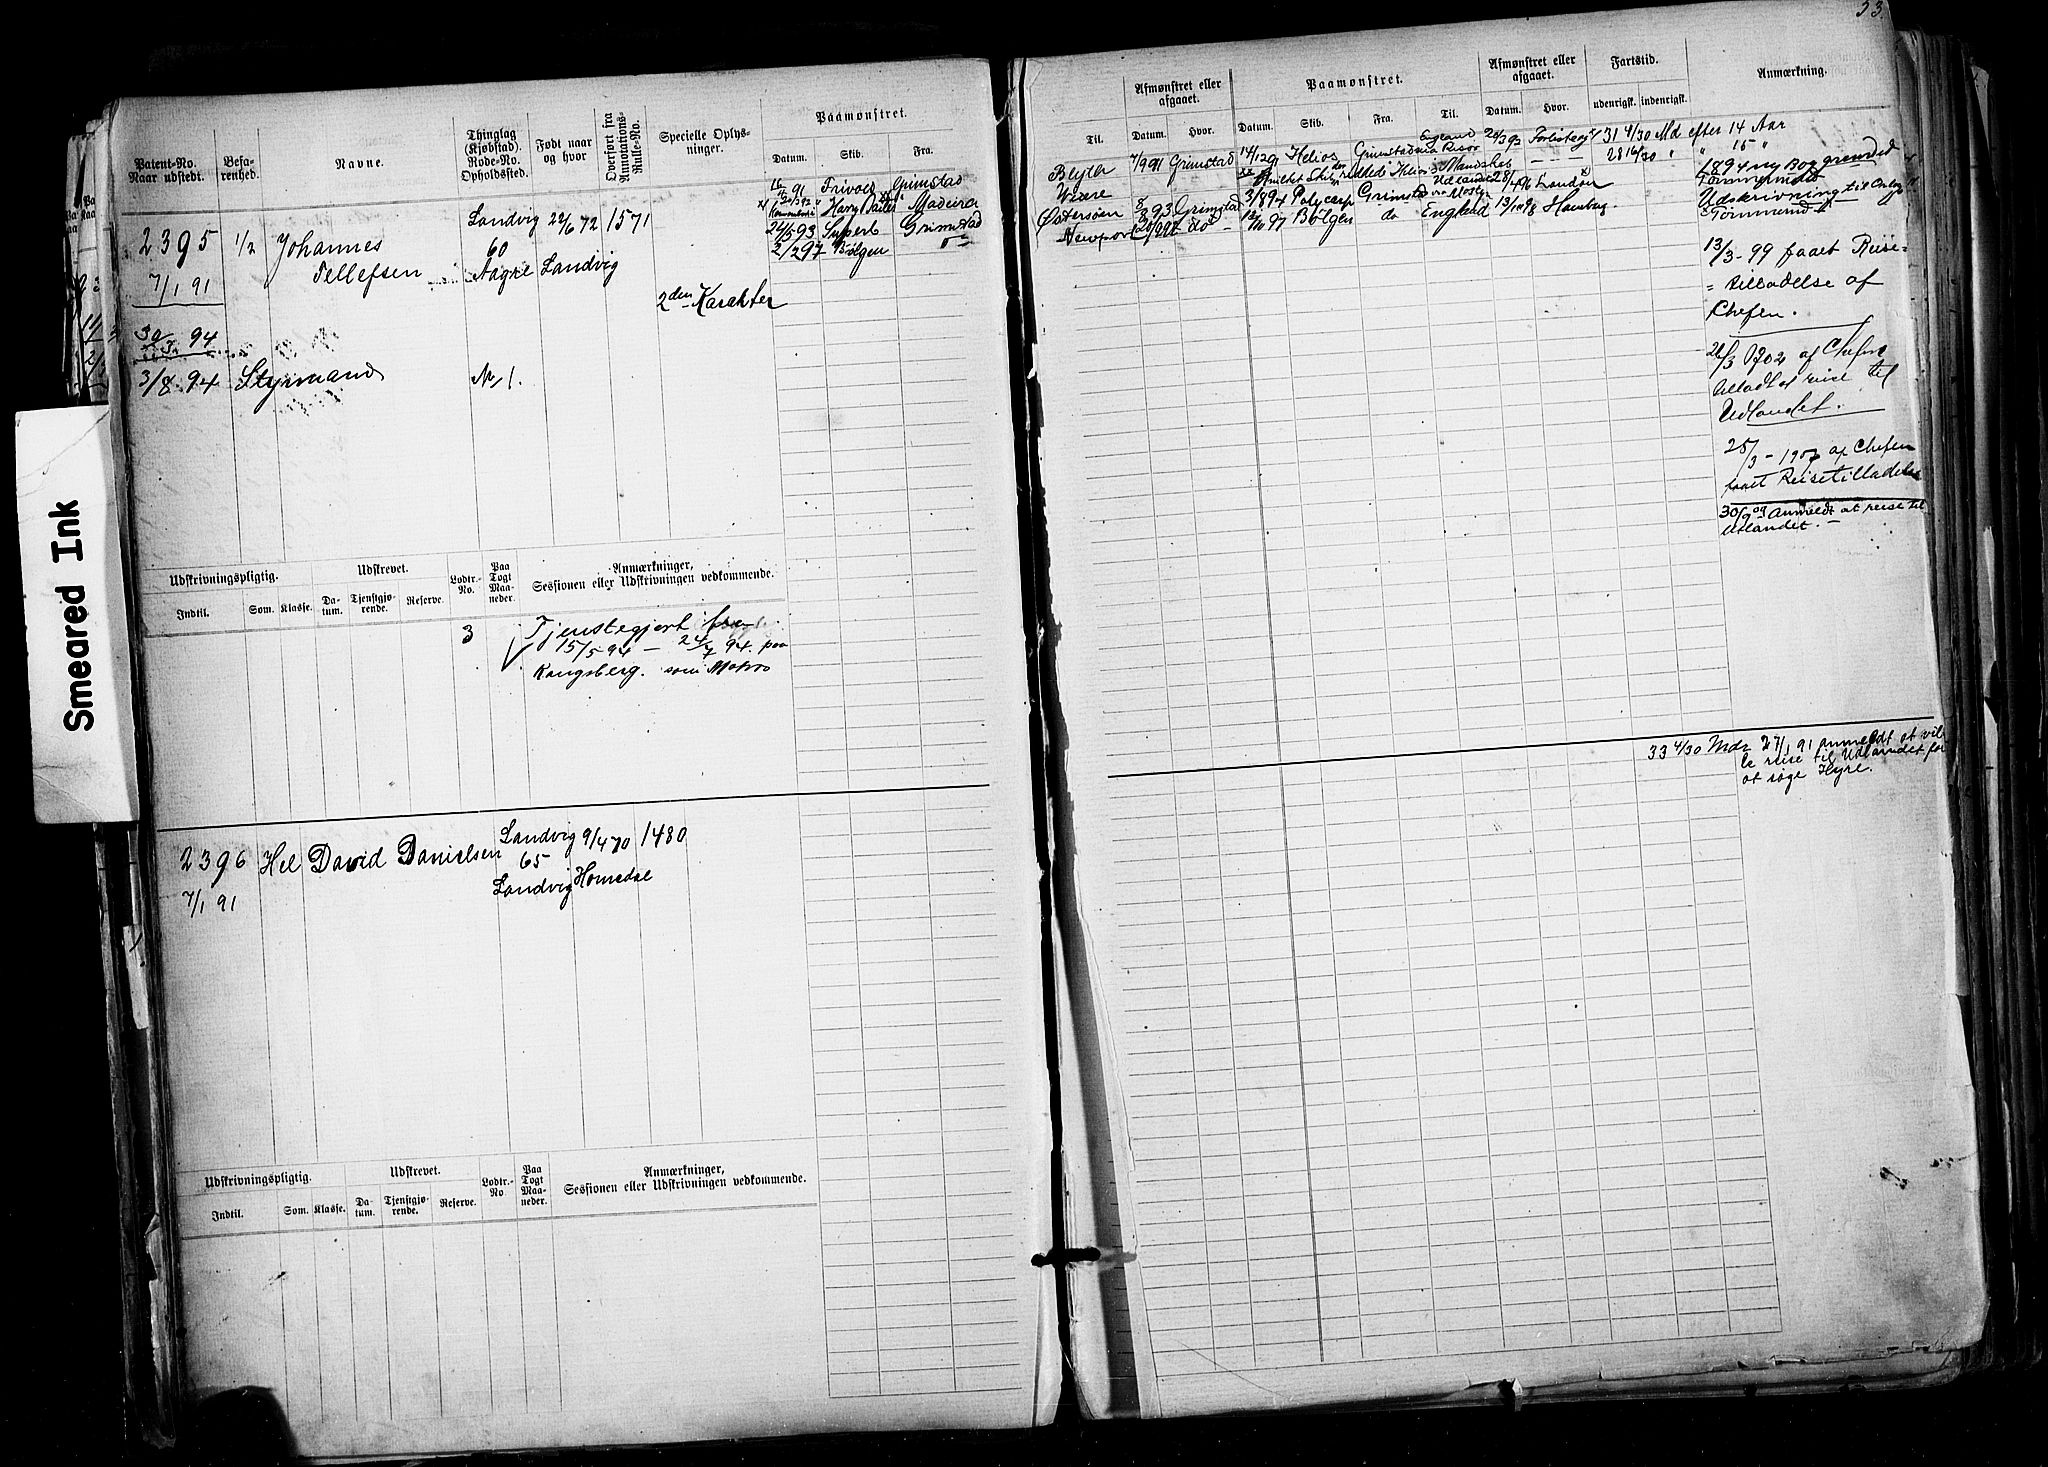 53.
Patent-No.
Naar udstedt.
Befa-
renhed.
Navne.
Thinglag
(Kjøbstad).
Rode-No.
Opholdssted.
Født naar
og hvor
Overført fra
Annotations-
Rulle-No.
Specielle Oplys-
ninger.
Paamønstret.
Datum.
Skib.
Fra.
Til.
Afmønstret eller
afgaaet.
Datum.
Hvor.
Paamønstret.
Datum.
Skib.
Fra.
Til.
Afmønstret eller
afgaaet.
Datum.
Hvor.
Fartstid.
udenrigsk.
indenrigsk.
Anmærkning.
2395
7/1 91
30/3 94
3/8 94
1/2
Johannes
Tellefsen
Styrmand
Landvig
60
Aagre
No 1.
22/6 72
Landvig
1571
2den Karakter
91 Frivold Grimstad
Harry Madeira
24/5 93 Superb Grimstad
2/2 97 Bølgen
Blyth 7/9 91 Grimstad
14/12 91 Helios Grimstad
England
Risør
Mandskab
Udlandet
Østersøen
8/8 93 Grimstad
3/8 94 Polycarp Grimstad
Newport
97 Bølgen do England
28/4 96 London
13/10 98 Hamburg
31 4/30 Md efter 14 Aar
28 16/30 " " 15 "
1894 ny Bog
Udskrivning til
Tømmermd
13/3-99 faaet Reise-
tilladelse af
Chefen.
1902 af Chefen
tilladt at reise til
Udlandet.
25/3-1907 af Chefen
faaet Reisetilladelse
30/9 09 Anmeldt at reise til
Utlandet.
Udskrivningspligtig.
Indtil.
Som.
Klasse.
Udskrevet.
Da-
tum.
Tjenstgjø-
rende.
Reserve.
Lodtr.-
No.
Paa
Togt
Maa-
neder.
Anmærkninger,
Sessionen eller Udskrivningen vedkommende.
3
Tjenstegjort fra
15/5 94 - 24/7 94. paa
Kongsberg. som Matros
2396
7/1 91
Hel
David Danielsen
Landvig
65
Landvig
9/4 70
Homedal
1480
33 4/30 Mdr
27/1 91 anmeldt at vil-
le reise til Udlandet for
at søge Hyre.
Udskrivningspligtig.
Indtil.
Som.
Klasse.
Udskrevet.
Da-
tum.
Tjenstgjø-
rende.
Reserve.
Lodtr.-
No
Paa
Togt
Maa-
neder.
Anmærkninger,
Sessionen eller Udskrivningen vedkommende.
Smeared Ink